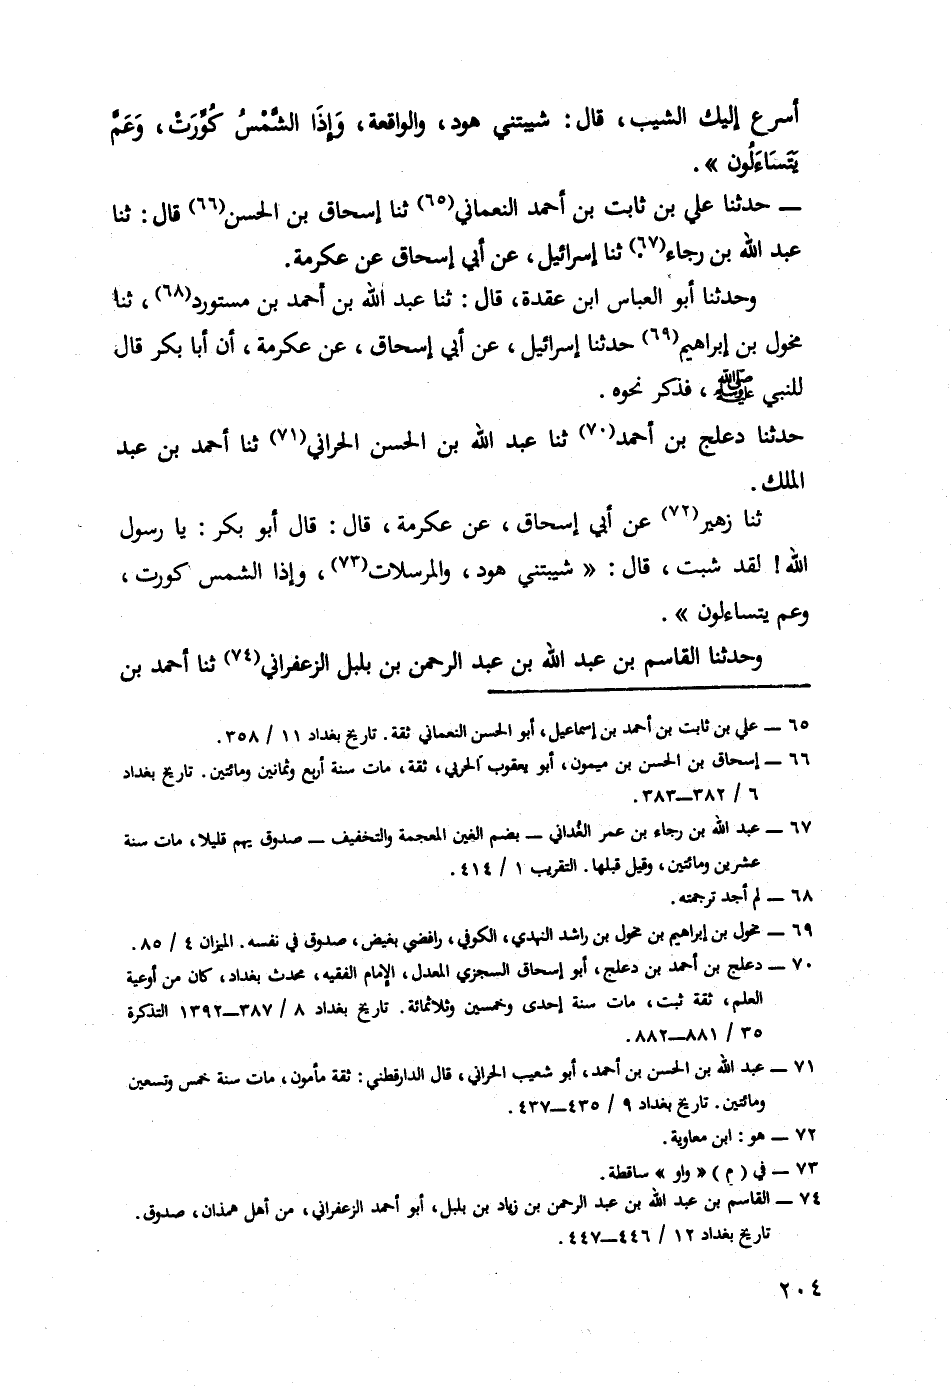 أسرع إليك الشيب ، قال : شيبتني هود ، والواقعة ، وَإِذَا الشَّمْسُ كُوِّرَتْ ، وَعَمَّ
يَتَسَاءَلُون » .
ــ حدثنا علي بن ثابت بن أحمد النعماني(٦٥) ثنا إسحاق بن الحسن(٦٦) قال : ثنا
عبد الله بن رجاء(٦٧) ثنا إسرائيل ، عن أبي إسحاق عن عكرمة .
وحدثنا أبو العباس ابن عقدة ، قال : ثنا عبد الله بن أحمد بن مستورد(٦٨) ، ثنا
مخول بن إبراهيم(٦٩) حدثنا إسرائيل ، عن أبي إسحاق ، عن عكرمة ، أن أبا بكر قال
للنبي ﷺ ، فذكر نحوه .
حدثنا دعلج بن أحمد(٧٠) ثنا عبد الله بن الحسن الحراني(٧١) ثنا أحمد بن عبد
الملك .
ثنا زهير(٧٢) عن أبي إسحاق ، عن عكرمة ، قال : قال أبو بكر : يا رسول
الله ! لقد شبت ، قال : « شيبتني هود ، والمرسلات(٧٣) ، وإذا الشمس كورت ،
وعم يتساءلون » .
وحدثنا القاسم بن عبد الله بن عبد الرحمن بن بلبل الزعفراني(٧٤) ثنا أحمد بن
٦٥ ــ علي بن ثابت بن أحمد بن إسماعيل ، أبو الحسن النعماني ثقة . تاريخ بغداد ١١ / ٣٥٨ .
٦٦ ــ إسحاق بن الحسن بن ميمون ، أبو يعقوب الحربي ، ثقة ، مات سنة أربع وثمانين ومائتين . تاريخ بغداد
٦ / ٣٨٢ــ٣٨٣ .
٦٧ ــ عبد الله بن رجاء بن عمر الغُداني ــ بضم الغين المعجمة والتخفيف ــ صدوق يهم قليلا ، مات سنة
عشرين ومائتين ، وقيل قبلها . التقريب ١ / ٤١٤ .
٦٨ ــ لم أجد ترجمته .
٦٩ ــ مخول بن إبراهيم بن مخول بن راشد النهدي ، الكوفي ، رافضي بغيض ، صدوق في نفسه . الميزان ٤ / ٨٥ .
٧٠ ــ دعلج بن أحمد بن دعلج ، أبو إسحاق السجزي المعدل ، الإمام الفقيه ، محدث بغداد ، كان من أوعية
العلم ، ثقة ثبت ، مات سنة إحدى وخمسين وثلاثمائة . تاريخ بغداد ٨ / ٣٨٧ــ١٣٩٢ التذكرة
٣٥ / ٨٨١ــ٨٨٢ .
٧١ ــ عبد الله بن الحسن بن أحمد ، أبو شعيب الحراني ، قال الدارقطني : ثقة مأمون ، مات سنة خمس وتسعين
ومائتين . تاريخ بغداد ٩ / ٤٣٥ــ٤٣٧ .
٧٢ ــ هو : ابن معاوية .
٧٣ ــ في ( م ) « واو » ساقطة .
٧٤ ــ القاسم بن عبد الله بن عبد الرحمن بن زياد بن بلبل ، أبو أحمد الزعفراني ، من أهل همذان ، صدوق .
تاريخ بغداد ١٢ / ٤٤٦ــ٤٤٧ .
٢٠٤